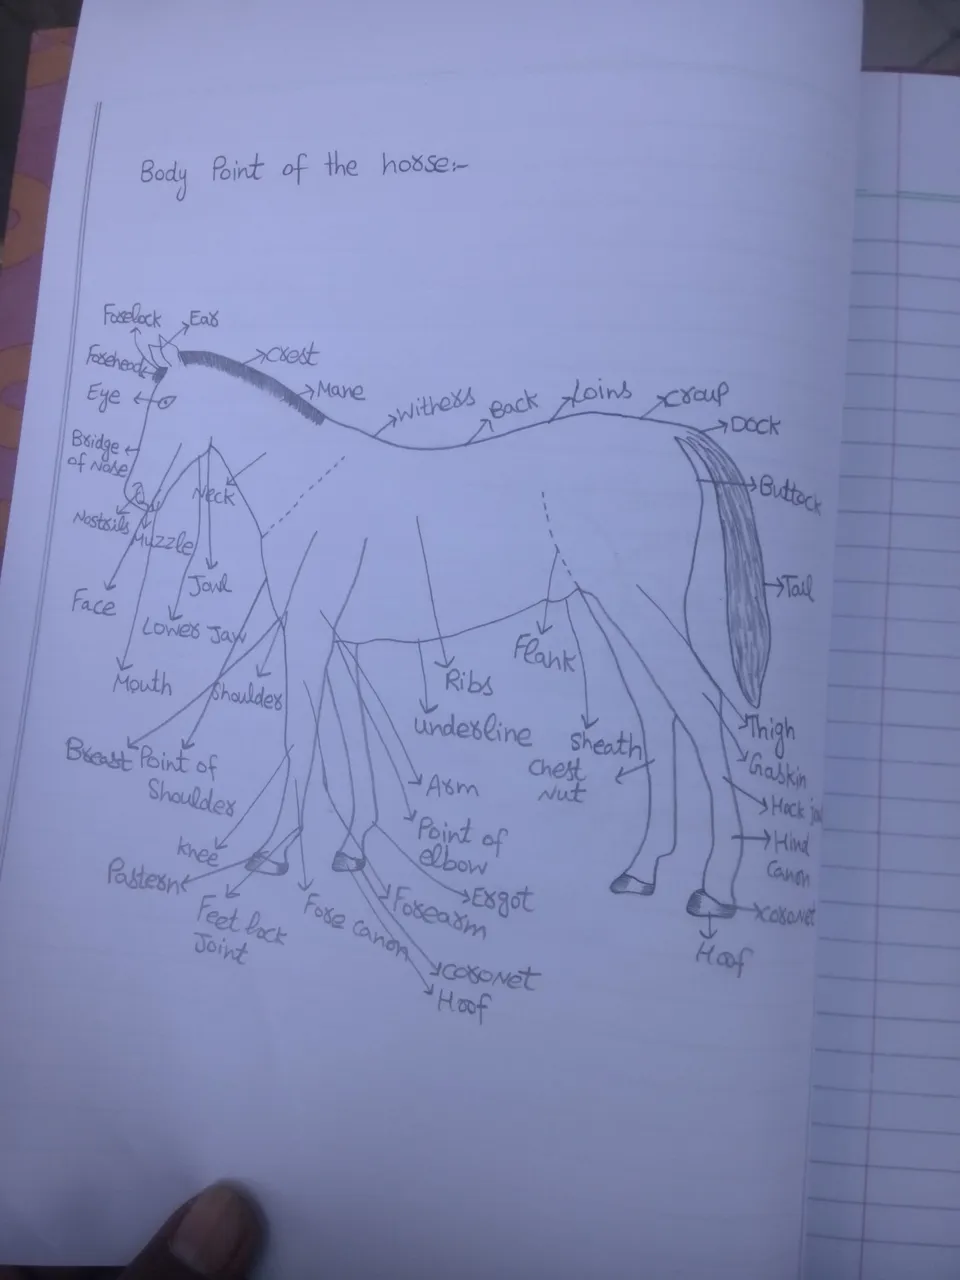 Body Point of the horse:-
Forelock
Ear
Forehead
Crest
Eye
Mane
Withers
Back
Loins
Croup
Dock
Bridge
of Nose
Neck
Buttock
Nostrils
Muzzle
Jowl
Tail
Face
Lower Jaw
Flank
Mouth
Shoulder
Ribs
underline
Sheath
Thigh
Breast
Point of
Shoulder
Chest
Nut
Gaskin
Arm
Hock
Point of
elbow
Knee
Hind
Canon
Pastern
Ergot
Feet lock
Joint
Fore canon
Forearm
coronet
Hoof
coronet
Hoof